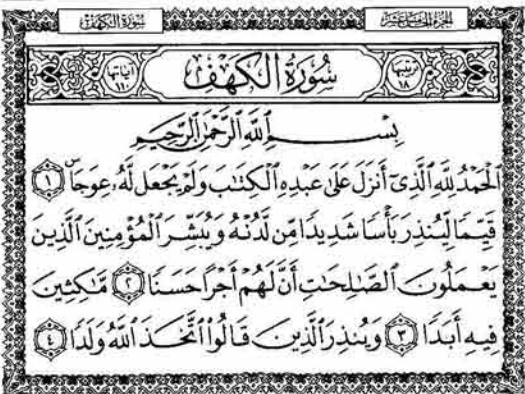 سُورَةُ الكَهْفِ
الجُزْءُ الخَامِسَ عَشَرَ
ترتيبها ١٨
سُورَةُ الكَهْفِ
آياتها ١١٠
بِسْمِ ٱللَّهِ ٱلرَّحْمَٰنِ ٱلرَّحِيمِ
ٱلْحَمْدُ لِلَّهِ ٱلَّذِىٓ أَنزَلَ عَلَىٰ عَبْدِهِ ٱلْكِتَٰبَ وَلَمْ يَجْعَل لَّهُۥ عِوَجَاۜ ١
قَيِّمًا لِّيُنذِرَ بَأْسًا شَدِيدًا مِّن لَّدُنْهُ وَيُبَشِّرَ ٱلْمُؤْمِنِينَ ٱلَّذِينَ
يَعْمَلُونَ ٱلصَّٰلِحَٰتِ أَنَّ لَهُمْ أَجْرًا حَسَنًا ٢ مَّٰكِثِينَ
فِيهِ أَبَدًا ٣ وَيُنذِرَ ٱلَّذِينَ قَالُوا۟ ٱتَّخَذَ ٱللَّهُ وَلَدًا ٤